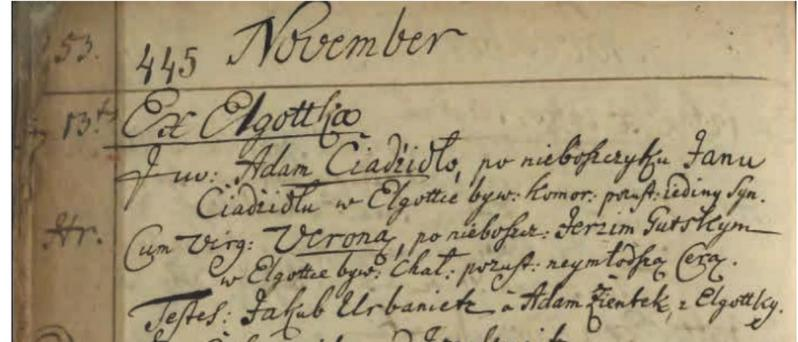 53. 445 November
13t. Ex Elgottka
Juv: Adam Ciadzidło, po nieboszczyku Janu
Ciadzidłu w Elgottce byw: Komor: pozust: iediny Syn.
Cum Virg: Verona, po niebosz: Jerzim Gurskym
w Elgottce byw: Chał: pozust: neymłodszą Cerą.
Testes: Jakub Urbanietz à Adam Zientek, z Elgottky.